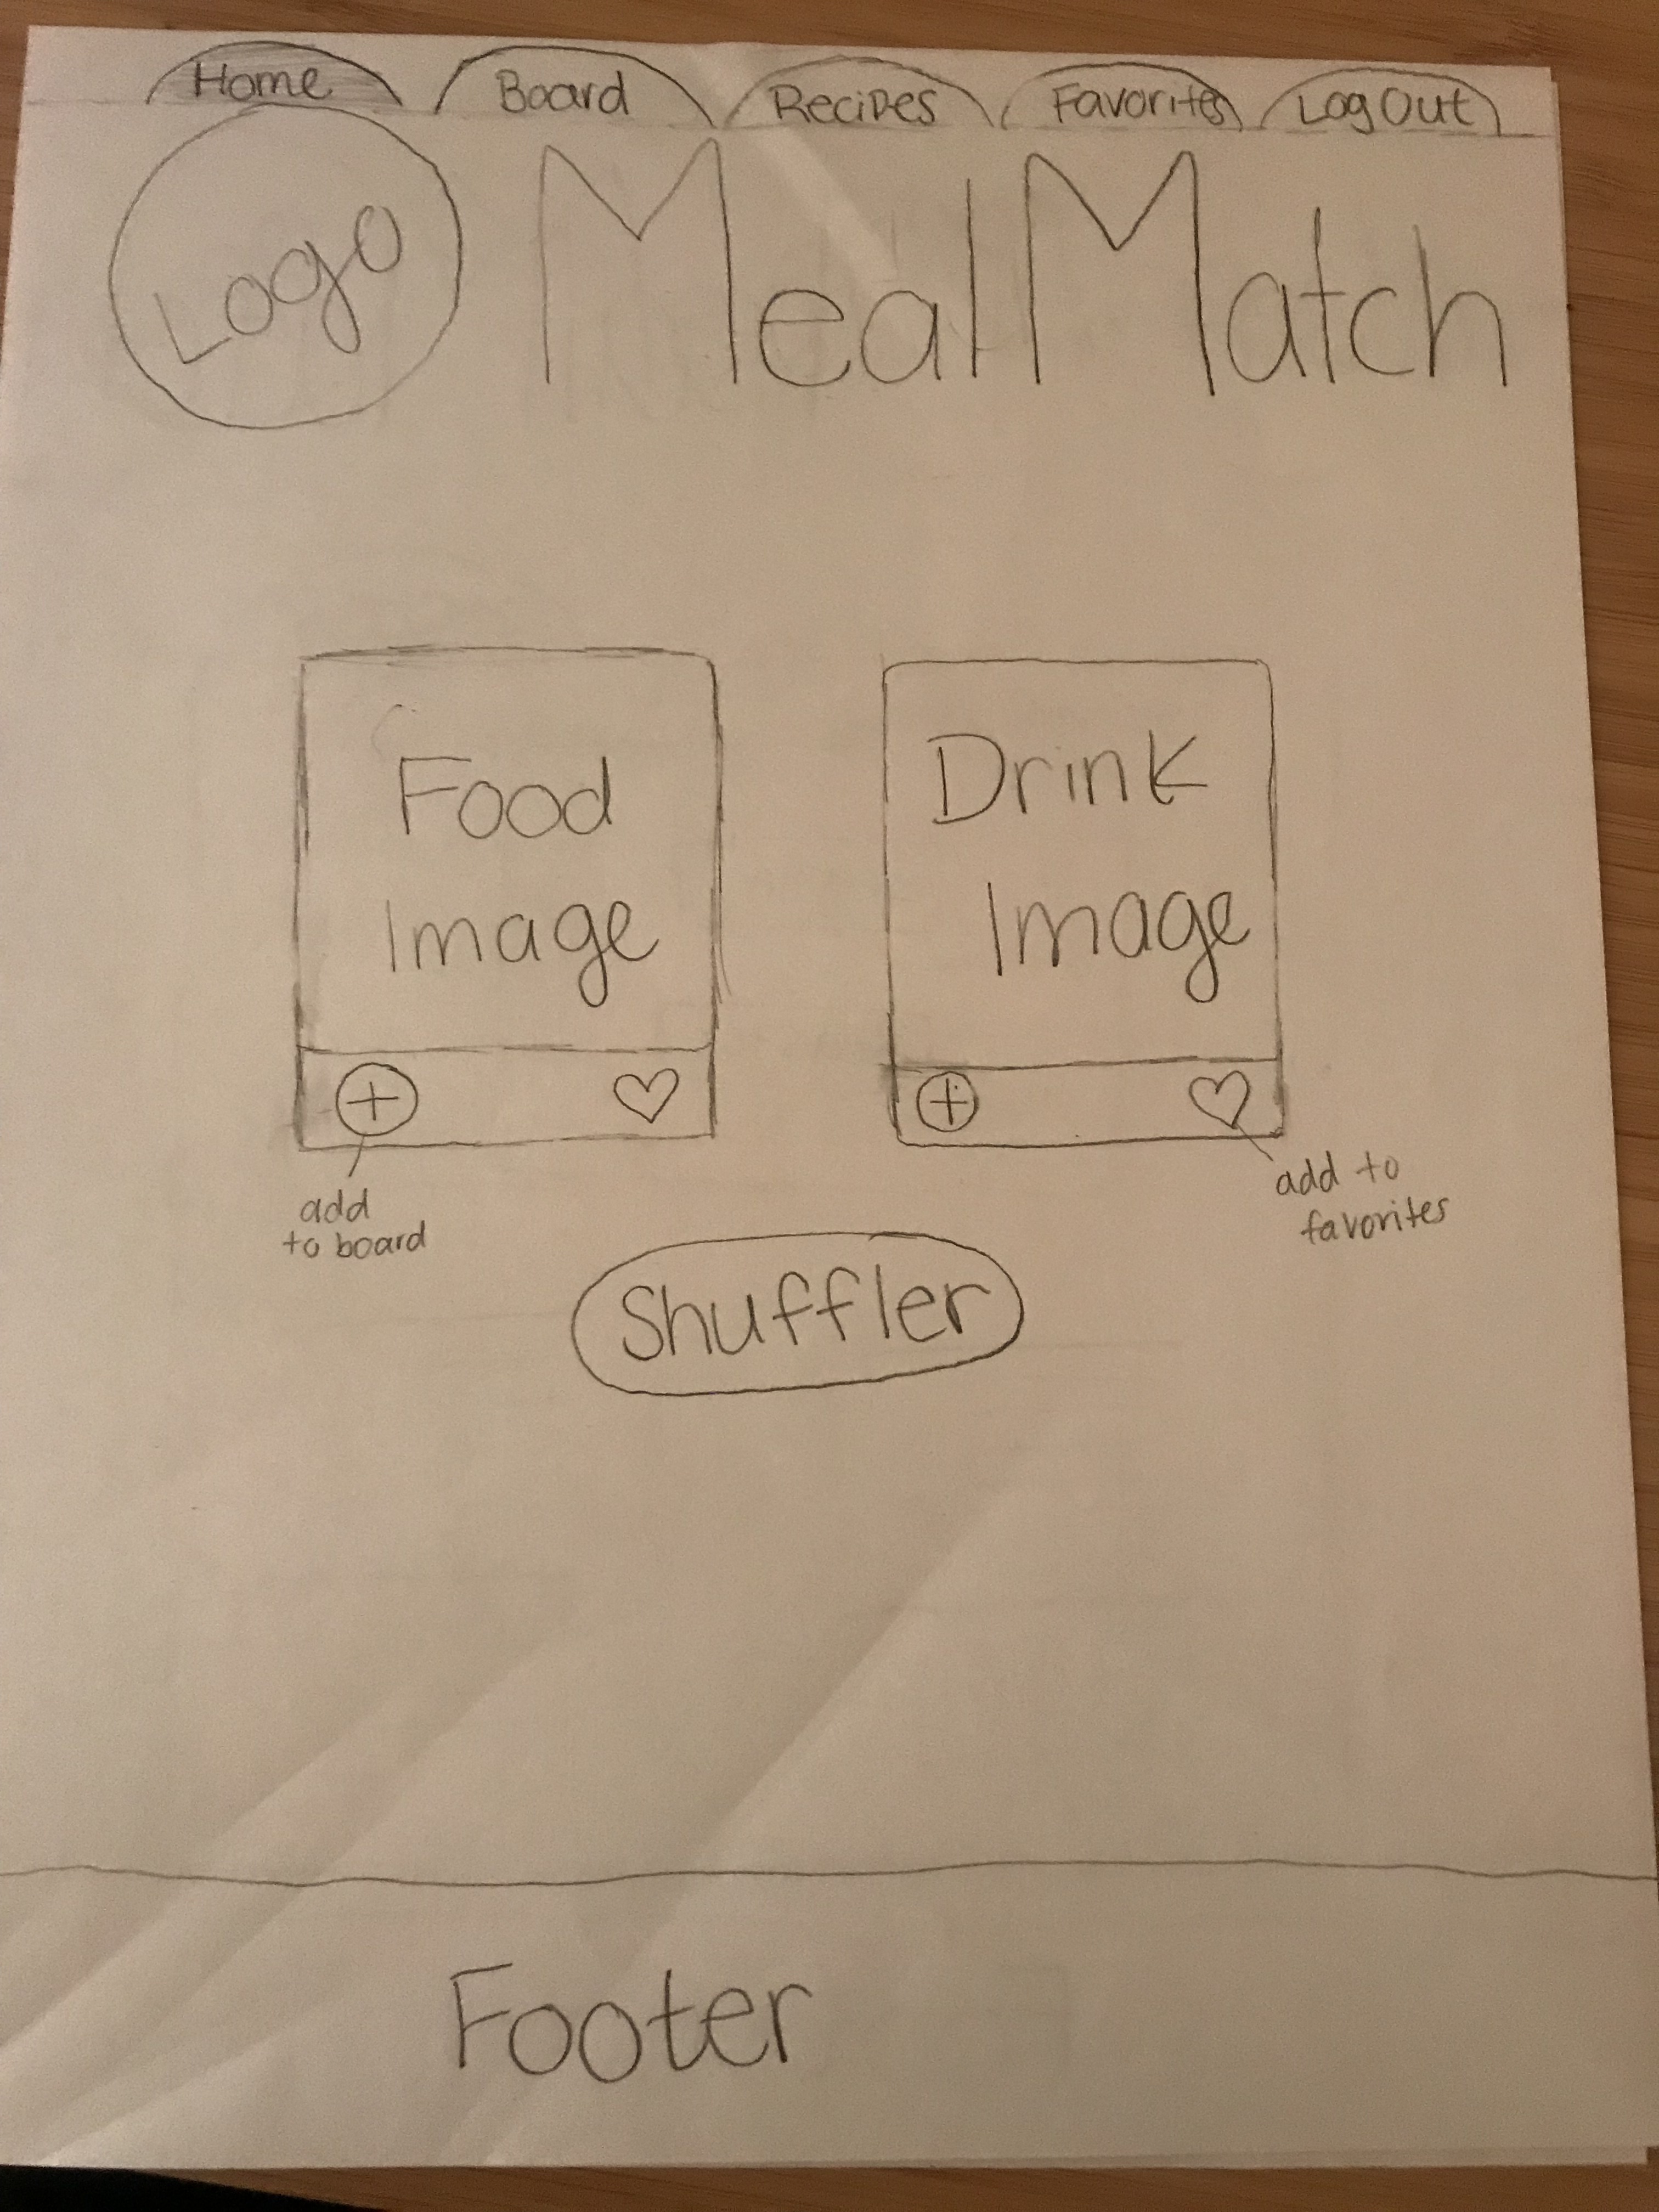 Home Board Recipes Favorites Log Out
Logo MealMatch
Food
Image
Drink
Image
add
to board
add to
favorites
Shuffler
Footer